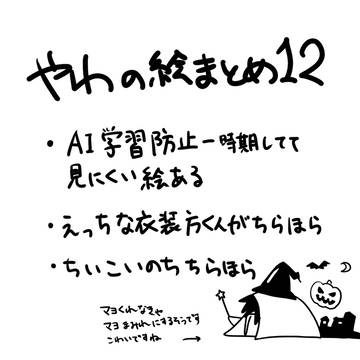 やわの絵まとめ12
・AI学習防止一時期してて
見にくい絵ある
・えっちな衣装方くんがちらほら
・ちいこいのもちらほら
マヨくれんなきゃ
マヨまみれにするそうです
こわいですね